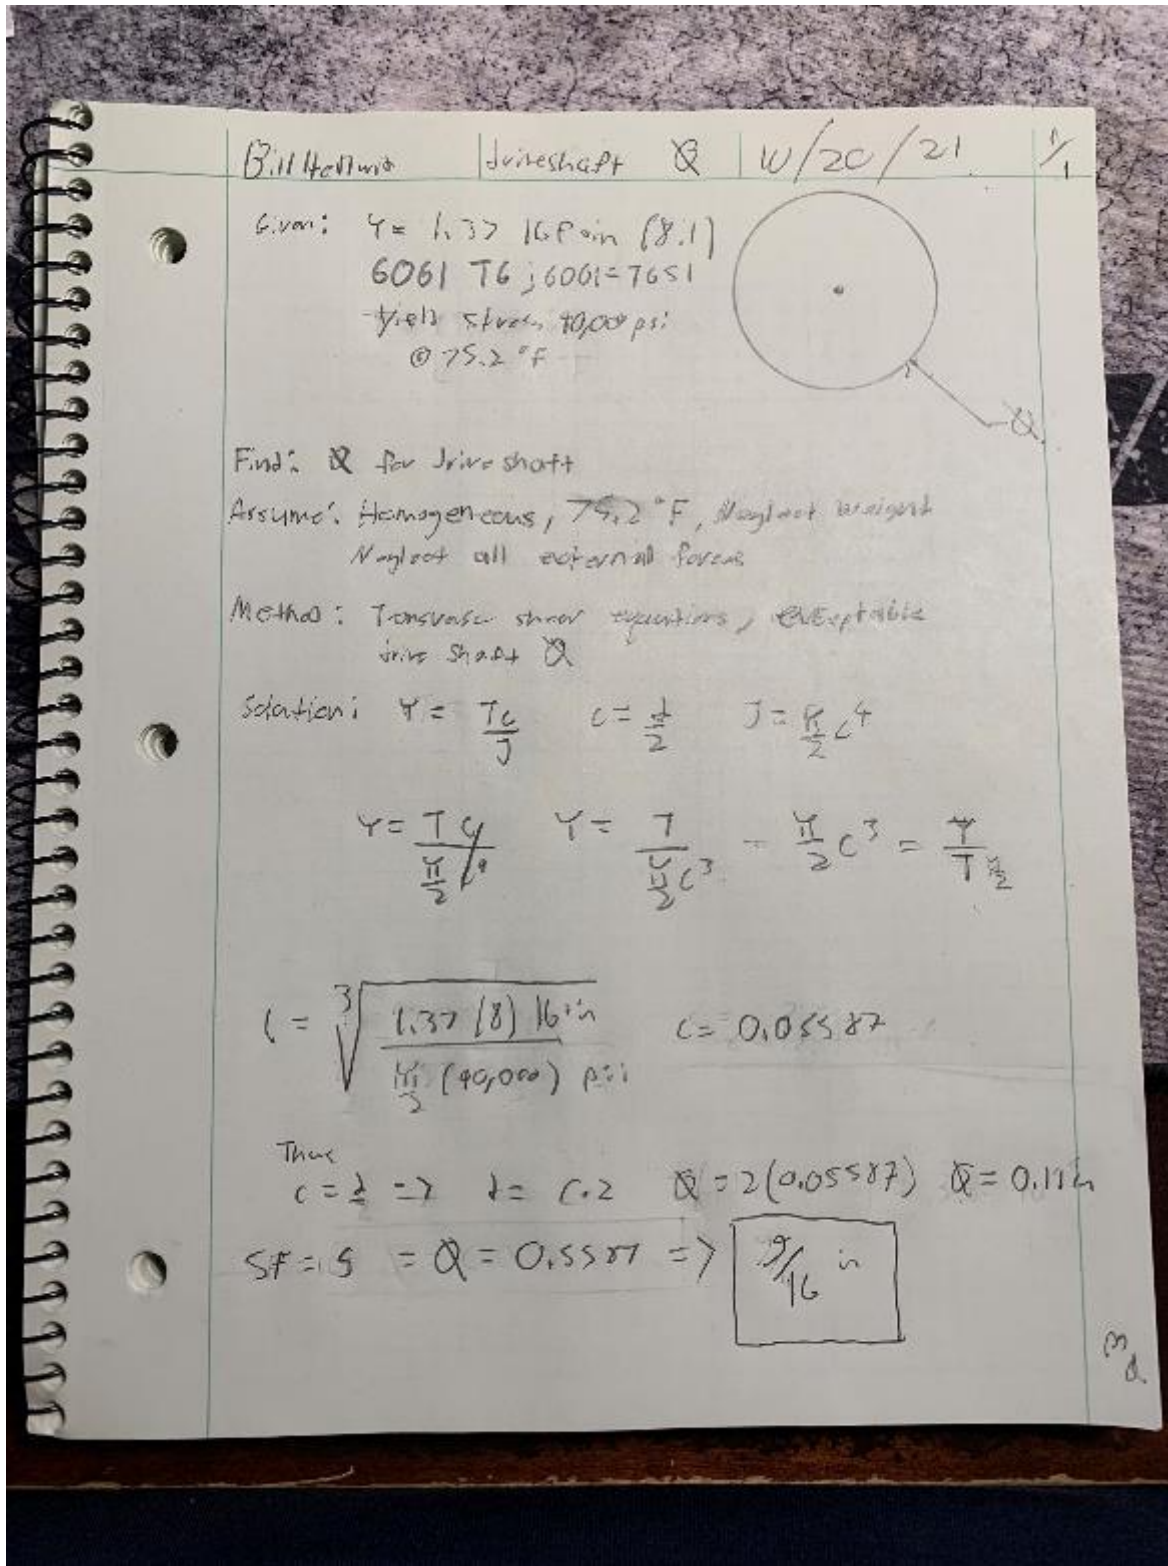 driveshaft Ø 10/20/21 1/1
Given: τ = 1.37 lbf·in (8.1)
6061 T6 ; 6061-T651
yield stress 40,000 psi
@ 75.2 °F
Ø
Find: Ø for drive shaft
Assume: Homogeneous, 75.2 °F, Neglect weight
Neglect all external forces
Method: shear equations,
drive shaft Ø
Solution: τ = Tc/J c = d/2 J = π/2 c^4
τ = Tc/(π/2 c^4) τ = T/(π/2 c^3) = π/2 c^3 = τ/(T π/2)
c = ∛(1.37 (8) lb in / (π/2 (40,000) psi)) c = 0.05587
Thus
c = d/2 => d = c·2 Ø = 2(0.05587) Ø = 0.11 in
SF = 5 = Ø = 0.5587 => 9/16 in